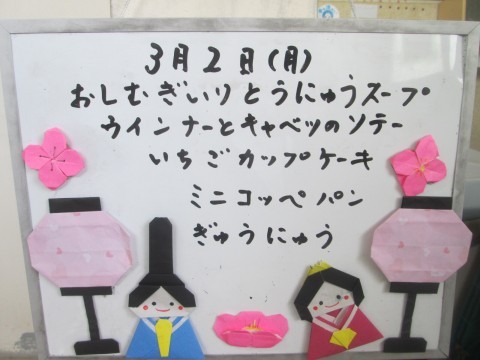 3月2日(月)
おしむぎいりとうにゅうスープ
ウインナーとキャベツのソテー
いちごカップケーキ
ミニコッペパン
ぎゅうにゅう